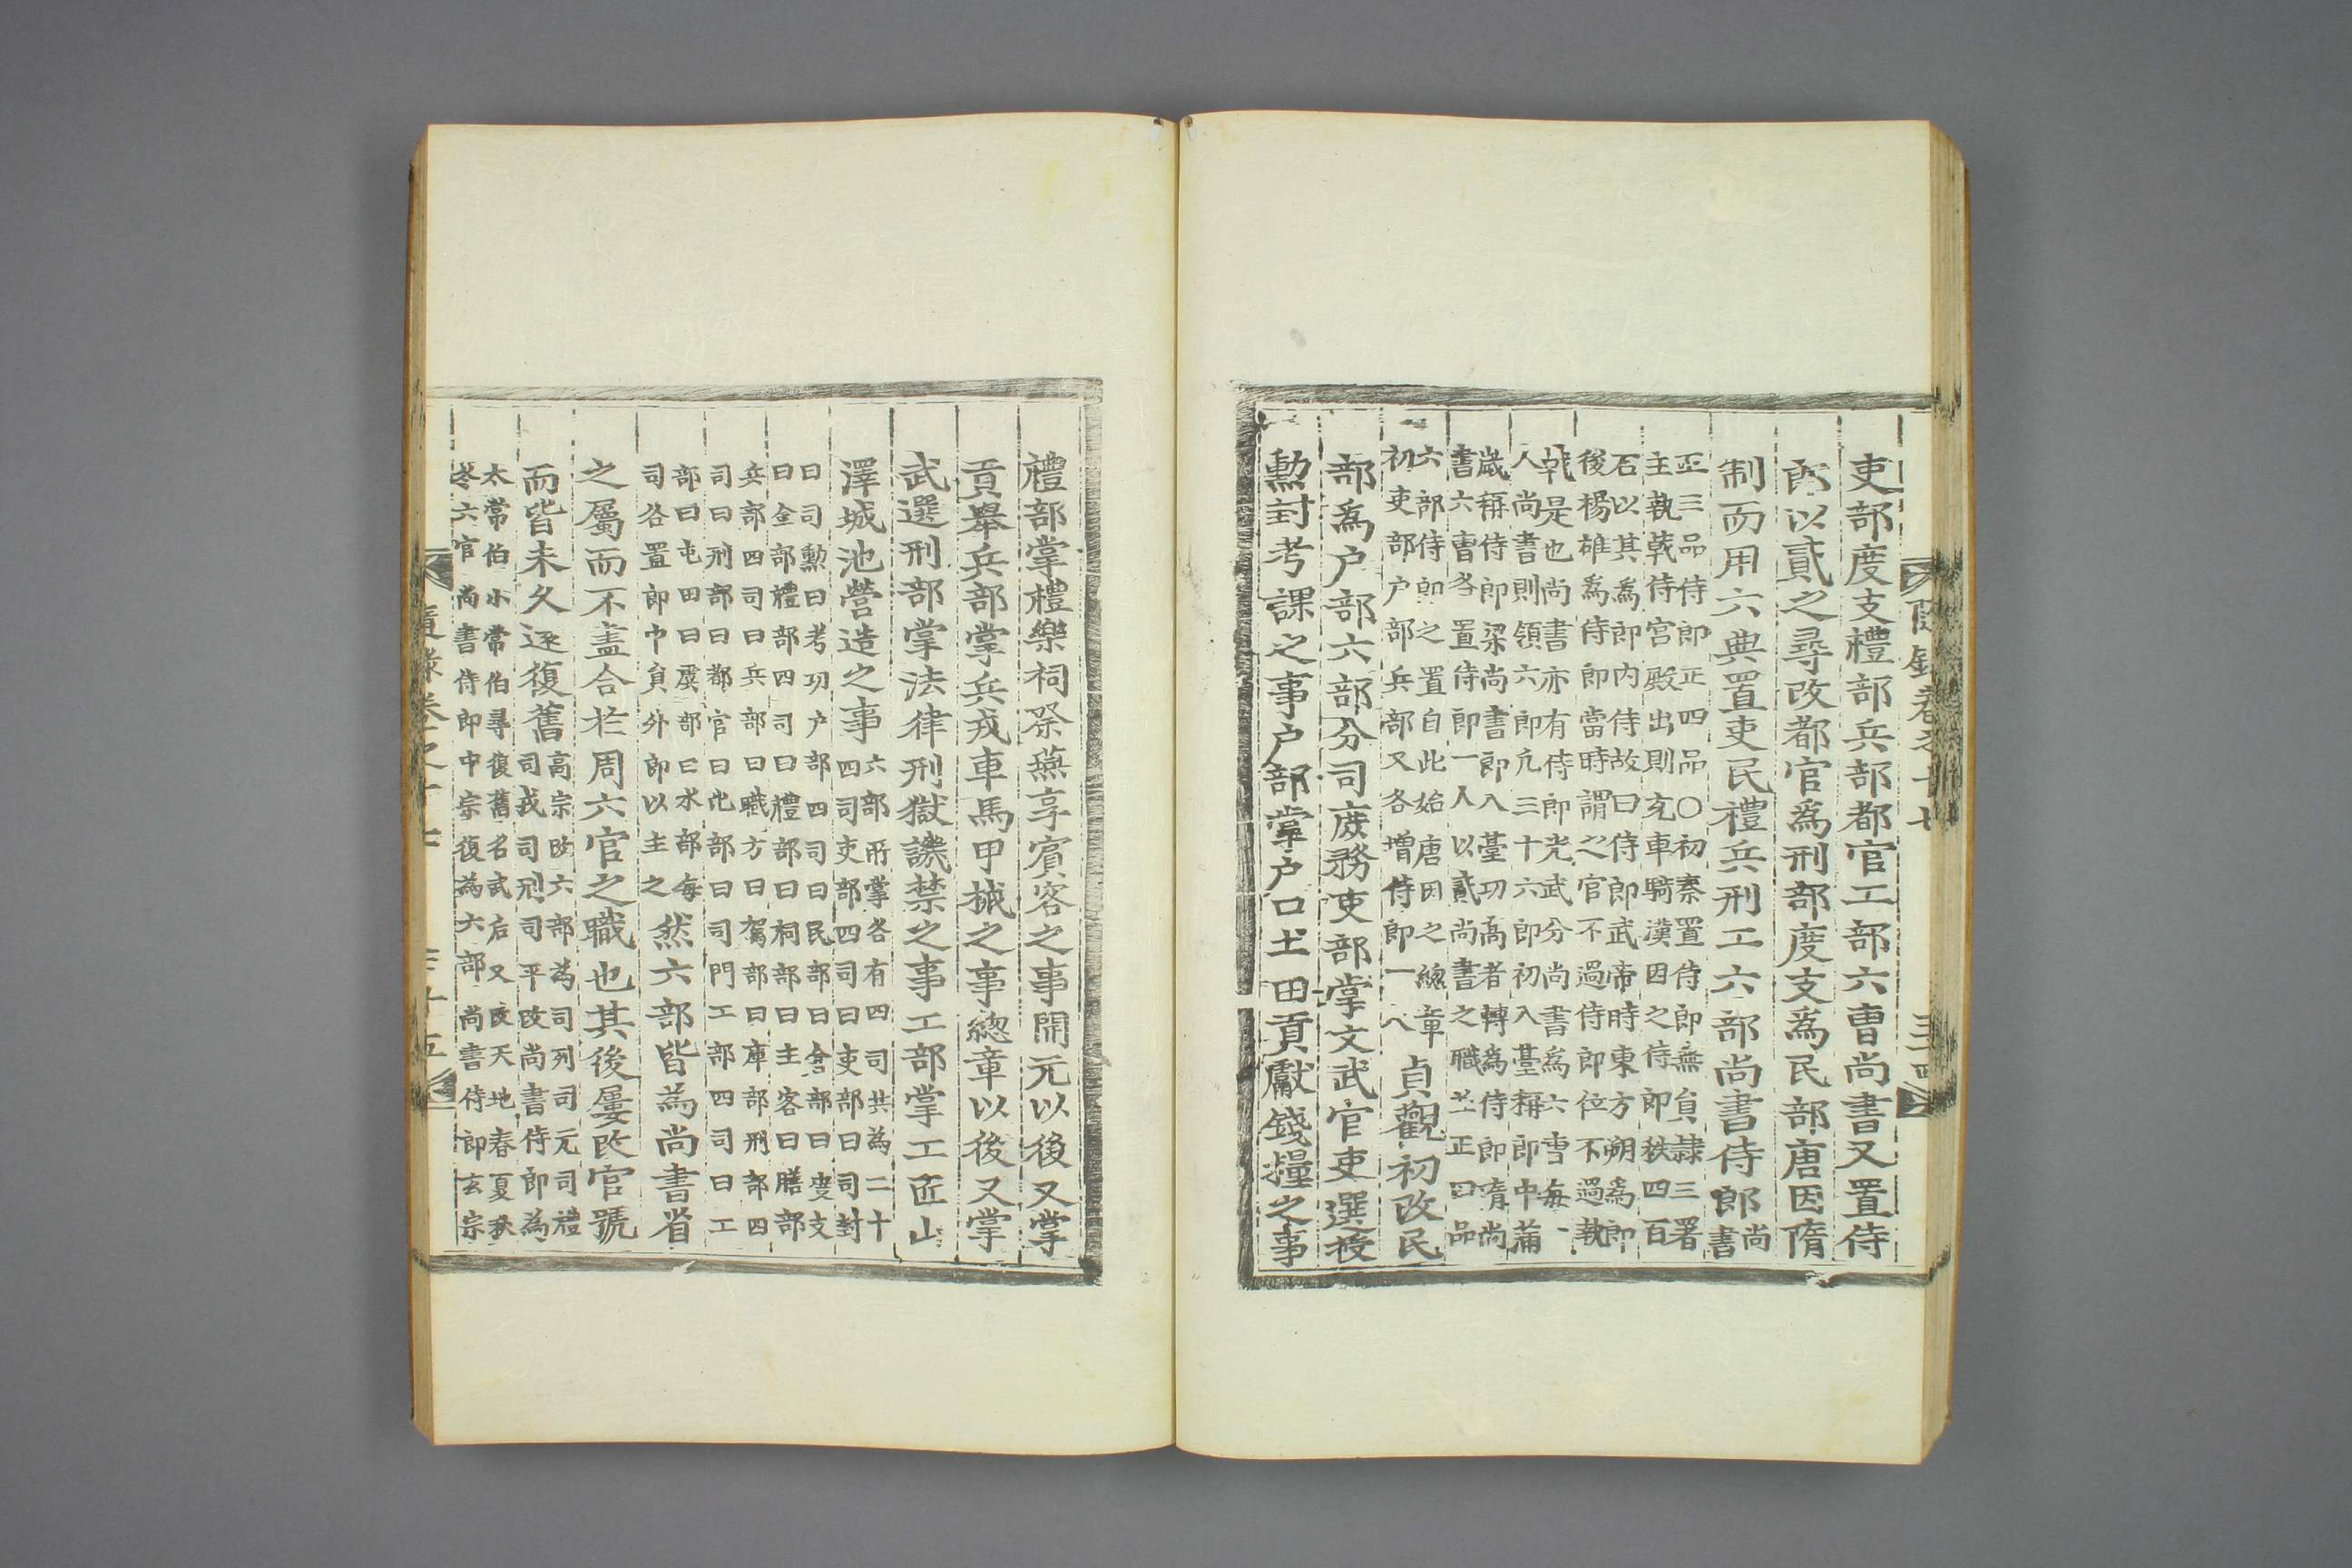 吏部度支禮部兵部都官工部六曹尚書又置侍
郎以貳之尋改都官爲刑部度支爲民部唐因隋
制而用六典置吏民禮兵刑工六部尚書侍郎尚
書
正三品侍郎正四品○初秦置侍郎無員隷三署
主執戟侍宮殿出則充車騎漢因之侍郎秩四百
石以其爲郎內侍故曰侍郎武帝時東方朔爲郎
後楊雄爲侍郎當時謂之官不過侍郎位不過執
戟是也尚書亦有侍郎光武分尚書爲六曹每一
人尚書則領六郎凢三十六郎初入䑓稱郎中蒲
歲稱侍郎梁尚書郎入䑓功高者轉為侍郎隋尚
書六曹各置侍郎一人以貳尚書之職並正四品
六部侍郎之置自此始唐因之總章
初吏部户部兵部又各增侍郎一人貞觀初改民
部爲户部六部分司庶務吏部掌文武官吏選授
勲封考課之事户部掌户口土田貢獻錢糧之事
隨錄卷之十七
三十四
禮部掌禮樂祠祭燕享賓客之事開元以後又掌
貢舉兵部掌兵戎車馬甲械之事總章以後又掌
武選刑部掌法律刑獄譏禁之事工部掌工匠山
澤城池營造之事六部所掌各有四司共為二十
四司吏部四司曰吏部曰司封
曰司勲曰考功户部四司曰民部曰金部曰度支
曰倉部禮部四司曰禮部曰祠部曰主客曰膳部
兵部四司曰兵部曰職方曰駕部曰庫部刑部四
司曰刑部曰都官曰比部曰司門工部四司曰工
部曰屯田曰虞部曰水部每
司各置郎中員外郎以主之然六部皆為尚書省
之屬而不盡合於周六官之職也其後屢改官號
而皆未久逐復舊高宗改六部為司列司元司禮
司戎司刑司平改尚書侍郎為
太常伯小常伯尋復舊名武后又改天地春夏秋
冬六官尚書侍郎中宗復為六部尚書侍郎玄宗
隨錄卷之十七
三十五